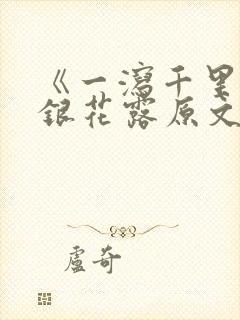 《一瀉千里
銀花露原文
盧奇